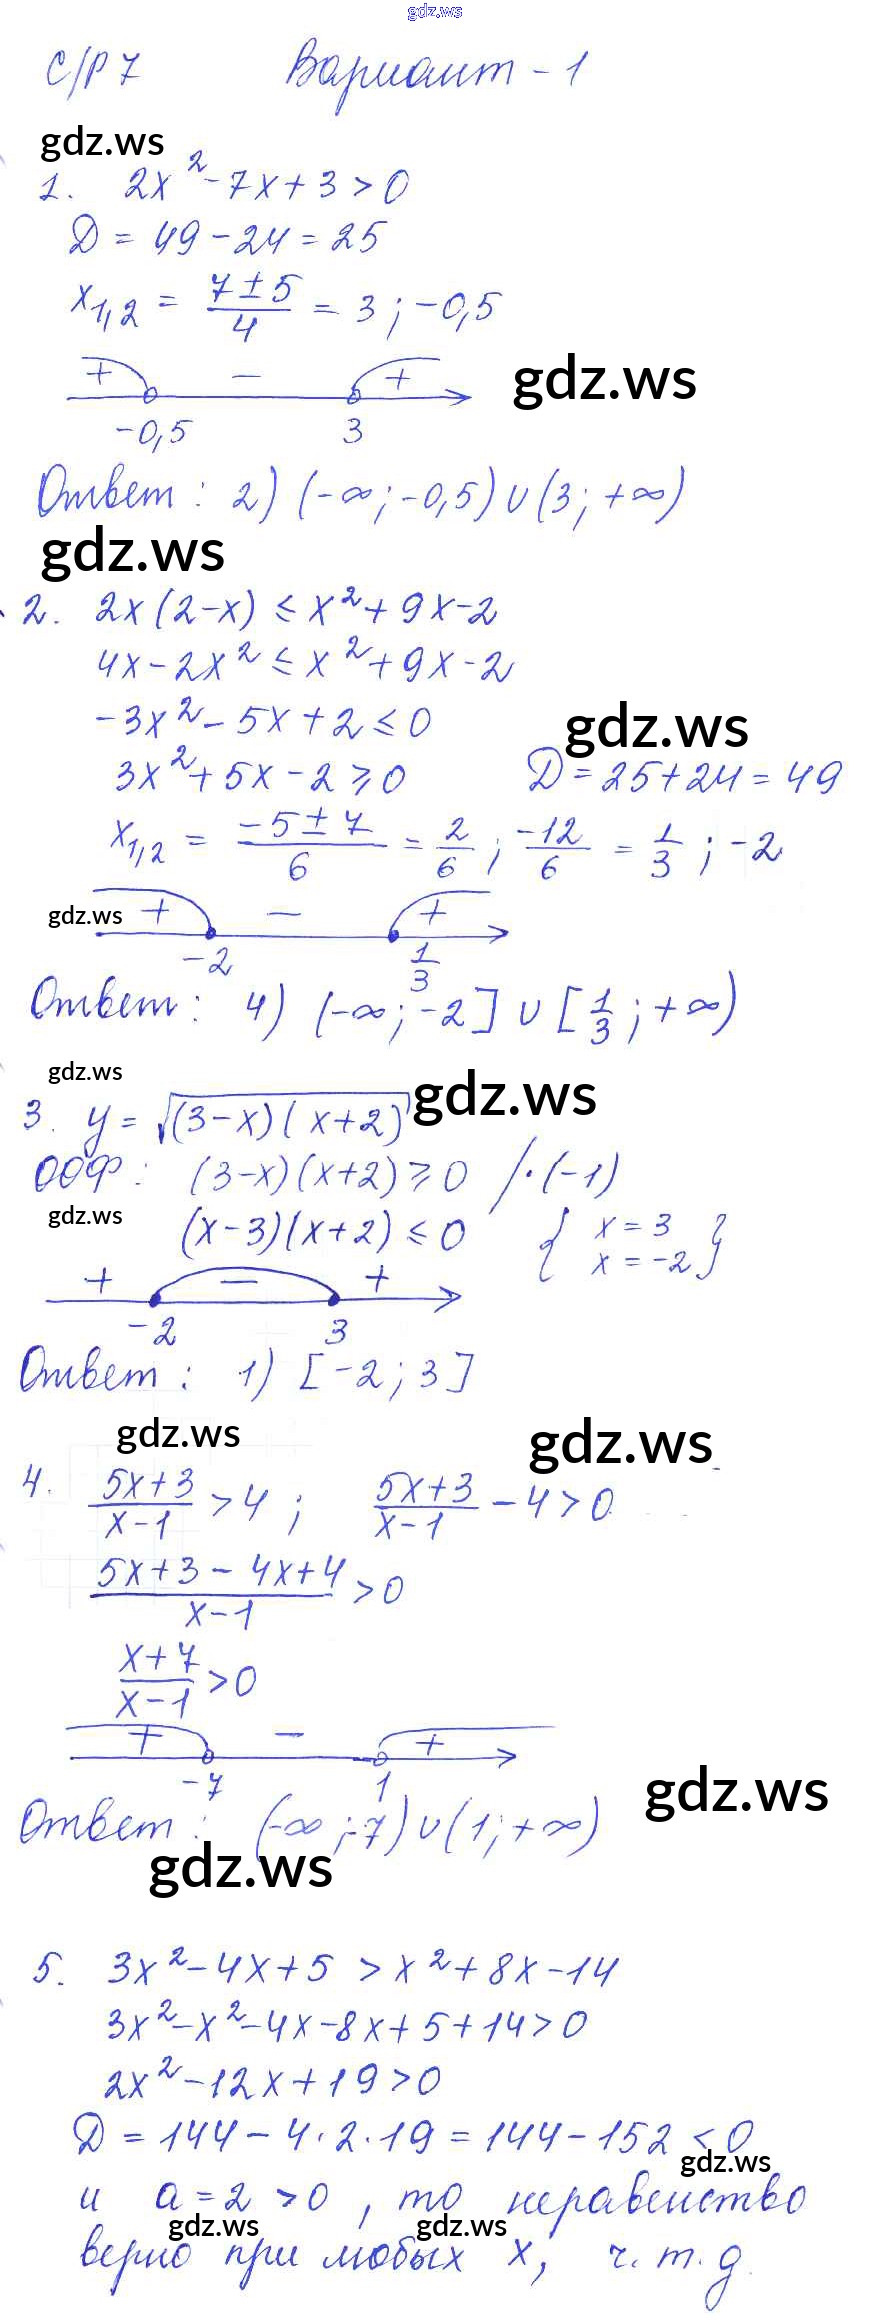 gdz.ws
С/Р 7 Вариант - 1
gdz.ws
1. 2x² - 7x + 3 > 0
Д = 49 - 24 = 25
x₁,₂ = (7 ± 5)/4 = 3 ; -0,5
+ - +
gdz.ws
-0,5 3
Ответ : 2) (-∞; -0,5) ∪ (3; +∞)
gdz.ws
2. 2x (2-x) ≤ x² + 9x - 2
4x - 2x² ≤ x² + 9x - 2
-3x² - 5x + 2 ≤ 0
gdz.ws
3x² + 5x - 2 ≥ 0 Д = 25 + 24 = 49
x₁,₂ = (-5 ± 7)/6 = 2/6 ; -12/6 = 1/3 ; -2
gdz.ws
+ - +
-2 1/3
Ответ : 4) (-∞; -2] ∪ [1/3; +∞)
gdz.ws
3. y = √(3-x)(x+2) gdz.ws
ООФ : (3-x)(x+2) ≥ 0 / · (-1)
gdz.ws
(x-3)(x+2) ≤ 0 { x = 3
x = -2 }
+ - +
-2 3
Ответ : 1) [-2; 3]
gdz.ws gdz.ws
4. (5x+3)/(x-1) > 4 ; (5x+3)/(x-1) - 4 > 0
(5x+3 - 4x+4)/(x-1) > 0
(x+7)/(x-1) > 0
+ - +
-7 1
gdz.ws
Ответ : (-∞; -7) ∪ (1; +∞)
gdz.ws
5. 3x² - 4x + 5 > x² + 8x - 14
3x² - x² - 4x - 8x + 5 + 14 > 0
2x² - 12x + 19 > 0
Д = 144 - 4 · 2 · 19 = 144 - 152 < 0
gdz.ws
и a = 2 > 0 , то неравенство
gdz.ws gdz.ws
верно при любых x, ч.т.д.